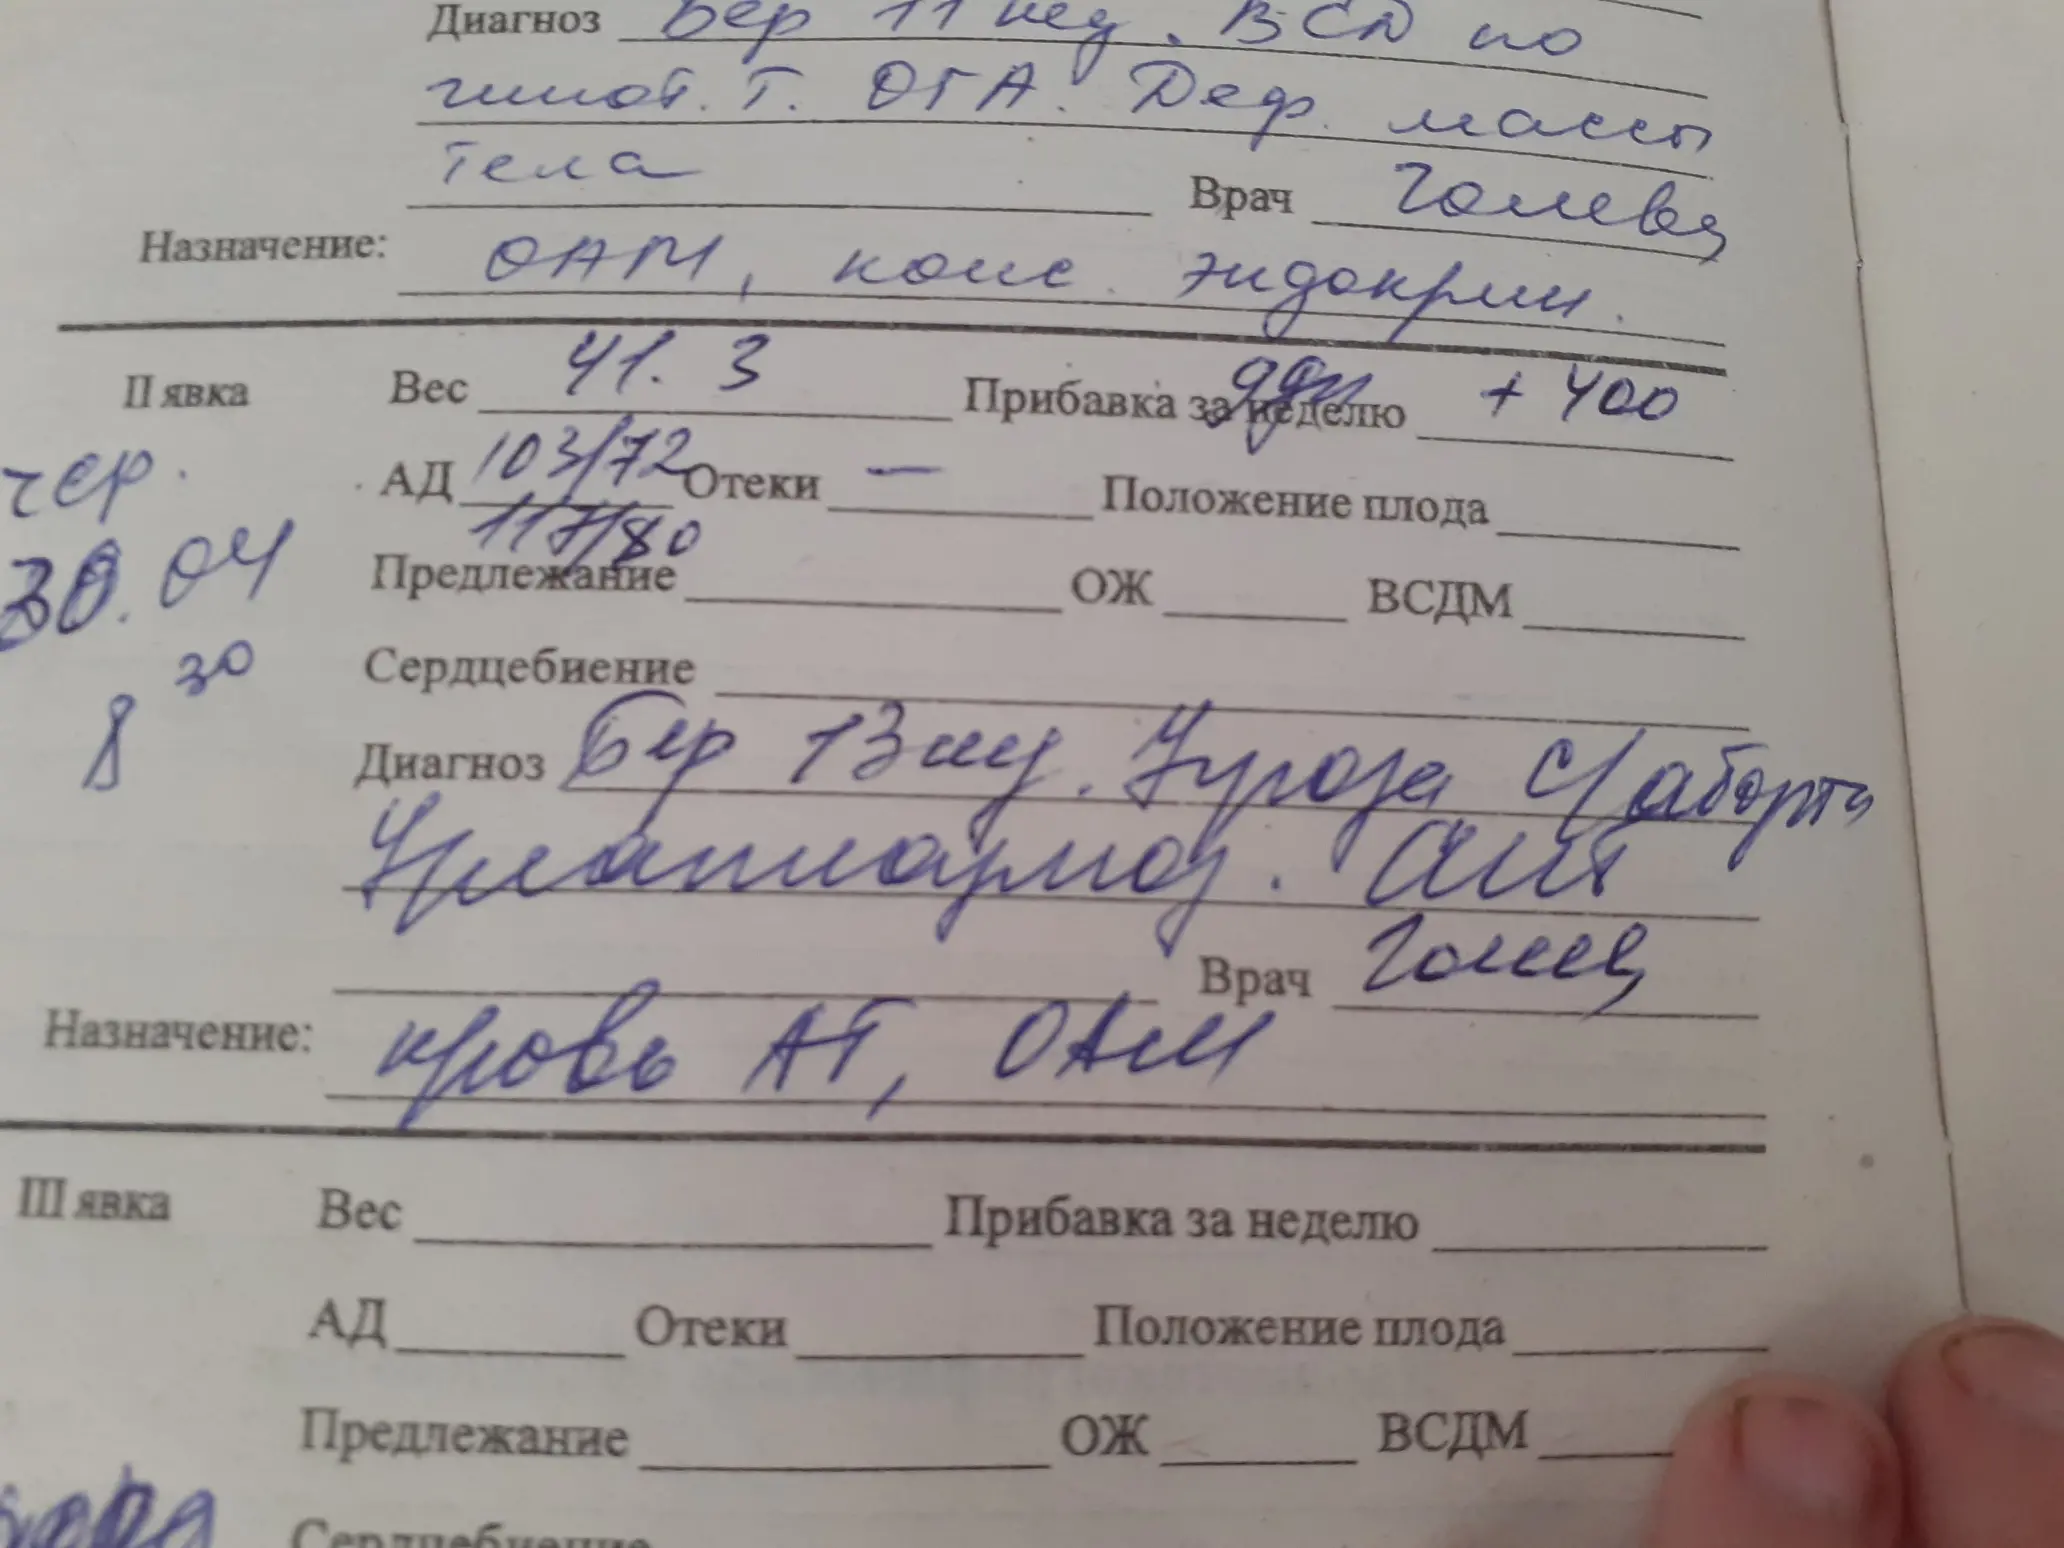 Диагноз Бер 11 нед. ВСД по
гипот. т. ОГА. Деф. массы
тела
Врач
Назначение: ОАМ, конс. эндокрин.
II явка Вес 41.3 Прибавка за неделю + 400
чер. АД 103/72 Отеки — Положение плода
117/80
30.04 Предлежание ОЖ ВСДМ
8 30 Сердцебиение
Диагноз Бер 13 нед. Угроза с/аборта
Уреаплазмоз.
Врач
Назначение: кровь АТ, ОАМ
III явка Вес Прибавка за неделю
АД Отеки Положение плода
Предлежание ОЖ ВСДМ
Сердцебиение